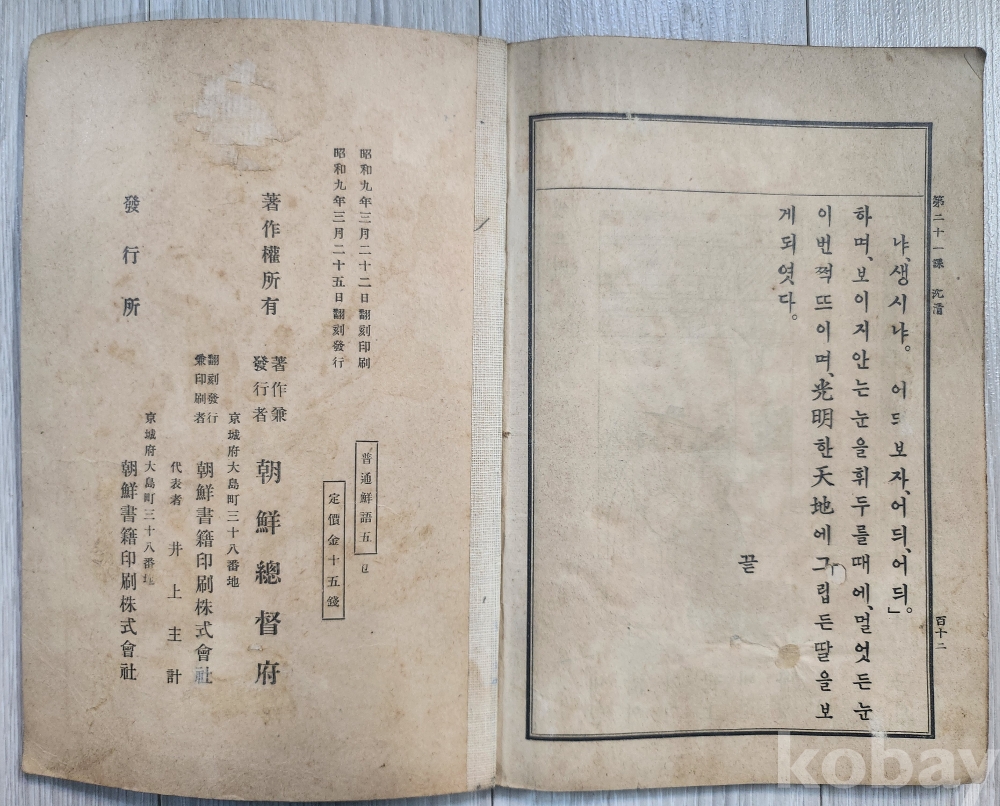 第二十一課 沈淸
百十二
냐、생시냐。 어듸보자、어듸、어듸」。
하며、보이지안는눈을휘두를때에、멀엇든눈
이번쩍뜨이며、光明한天地에그립든딸을보
게되엿다。
끝
昭和九年三月二十二日翻刻印刷
昭和九年三月二十五日翻刻發行
普通鮮語五
定價金十五錢
著作權所有
著作兼
發行者
朝鮮總督府
京城府大島町三十八番地
翻刻發行
兼印刷者
朝鮮書籍印刷株式會社
代表者 井上主計
京城府大島町三十八番地
發行所
朝鮮書籍印刷株式會社
kobay